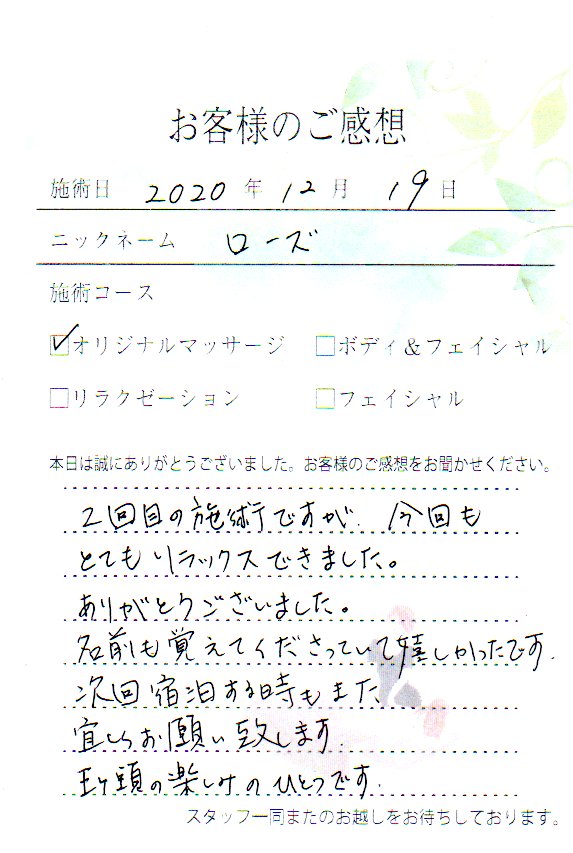 お客様のご感想
施術日 2020 年 12 月 19 日
ニックネーム ローズ
施術コース
☑オリジナルマッサージ □ボディ&フェイシャル
□リラクゼーション □フェイシャル
本日は誠にありがとうございました。お客様のご感想をお聞かせください。
2回目の施術ですが、今回も
とてもリラックスできました。
ありがとうございました。
名前も覚えてくださっていて嬉しかったです.
次回宿泊する時もまた
宜しくお願い致します.
の楽しみのひとつです.
スタッフ一同またのお越しをお待ちしております。